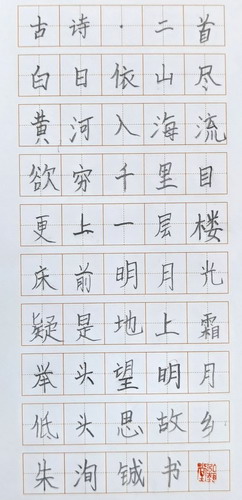 古诗·二首
白日依山尽
黄河入海流
欲穷千里目
更上一层楼
床前明月光
疑是地上霜
举头望明月
低头思故乡
朱洵铖书